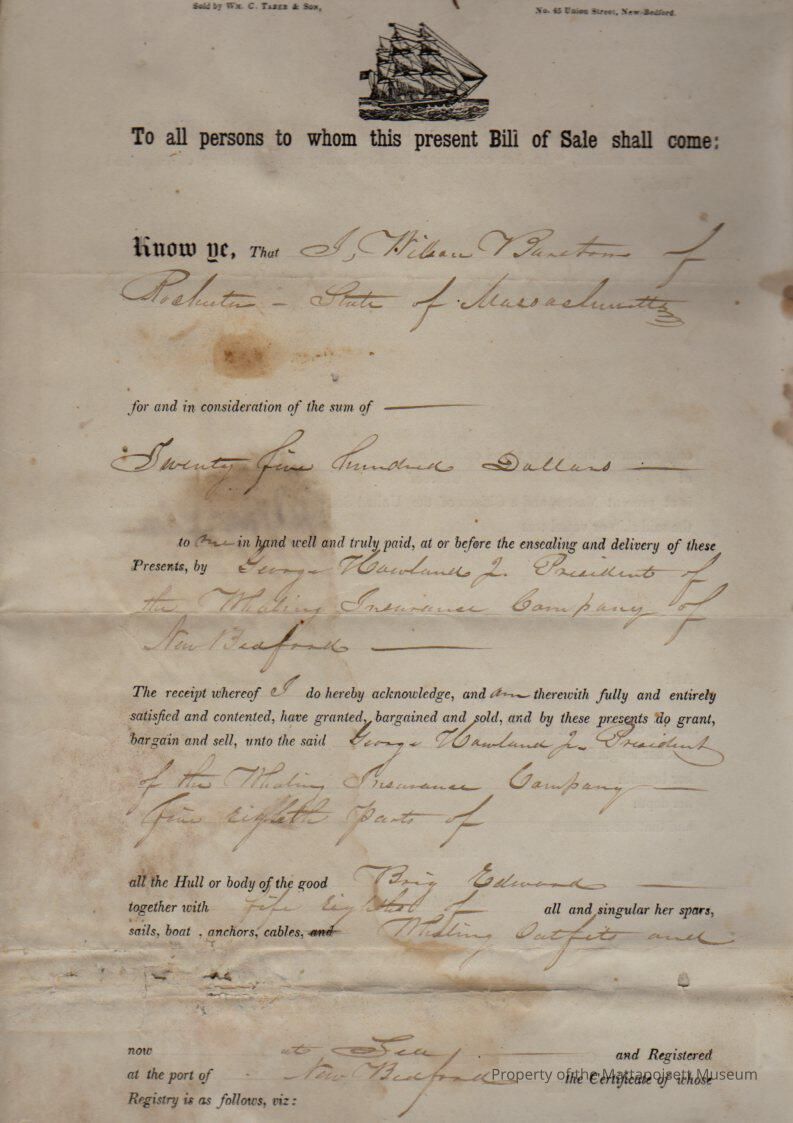 Sold by Wm. C. Taber & Son,   No. 45 Union Street, New-Bedford.
To all persons to whom this present Bill of Sale shall come:
Know ye, That I, Wilson Barstow of
Rochester - State of Massachusetts
for and in consideration of the sum of
Twenty five hundred Dollars
to me in hand well and truly paid, at or before the ensealing and delivery of these
Presents, by George Howland Jr. President of
the Whaling Insurance Company of
New Bedford
The receipt whereof I do hereby acknowledge, and am therewith fully and entirely
satisfied and contented, have granted, bargained and sold, and by these presents do grant,
bargain and sell, unto the said George Howland Jr. President
of the Whaling Insurance Company
five eighth Parts of
all the Hull or body of the good Brig Edward
together with five Eighths of all and singular her spars,
sails, boat , anchors, cables, and Whaling Outfits and
now at Sea and Registered
at the port of New Bedford the Certificate of whose
Registry is as follows, viz:
Property of the Mattapoisett Museum